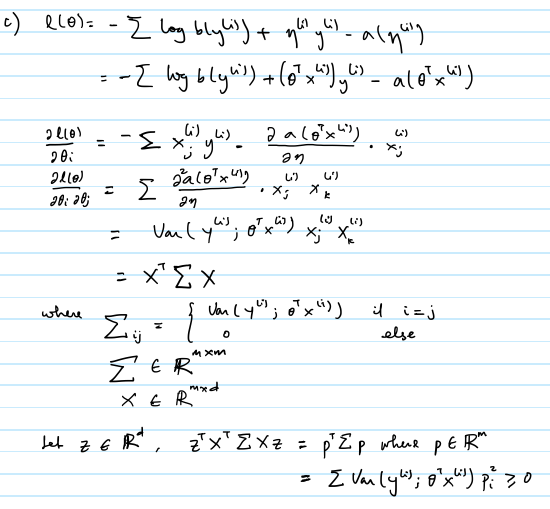 c) l(θ) = - ∑ log b(y⁽ⁱ⁾) + η⁽ⁱ⁾ y⁽ⁱ⁾ - a(η⁽ⁱ⁾)
= - ∑ log b(y⁽ⁱ⁾) + (θᵀx⁽ⁱ⁾) y⁽ⁱ⁾ - a(θᵀx⁽ⁱ⁾)
∂l(θ)/∂θi = - ∑ xⱼ⁽ⁱ⁾ y⁽ⁱ⁾ - ∂a(θᵀx⁽ⁱ⁾)/∂η · xⱼ⁽ⁱ⁾
∂l(θ)/∂θi ∂θj = ∑ ∂²a(θᵀx⁽ⁱ⁾)/∂η · xⱼ⁽ⁱ⁾ xₖ⁽ⁱ⁾
= Var(y⁽ⁱ⁾; θᵀx⁽ⁱ⁾) xⱼ⁽ⁱ⁾ xₖ⁽ⁱ⁾
= Xᵀ ∑ X
where ∑ij = { Var(y⁽ⁱ⁾; θᵀx⁽ⁱ⁾) if i=j
0 else
∑ ∈ ℝ^{m×m}
X ∈ ℝ^{m×d}
Let z ∈ ℝᵈ, zᵀXᵀ∑Xz = pᵀ∑p where p ∈ ℝᵐ
= ∑ Var(y⁽ⁱ⁾; θᵀx⁽ⁱ⁾) pᵢ² ≥ 0